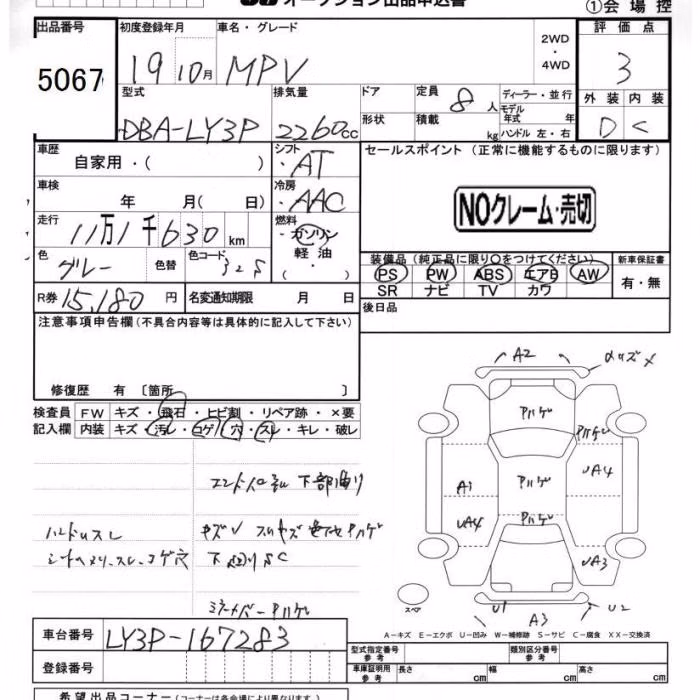 オークション出品申込書
①会場控
出品番号 初度登録年月 車名・グレード 2WD・4WD 評価点
5067 19 10月 MPV 3
型式 排気量 ドア 定員 8人 ディーラー・並行 外装 内装
モデル
DBA-LY3P 2260cc 形状 積載 kg 年式 年 D C
ハンドル 左・右
車歴 シフト セールスポイント（正常に機能するものに限ります）
自家用・（ ） AT
車検 冷房
年 月（ 日） AAC NOクレーム・売切
走行 燃料
11万1千630km ・ガソリン
色 色替 色コード 軽油 装備品（純正品に限り○をつけてください） 新車保証書
グレー 32S ・（ ） PS PW ABS エアB AW 有・無
SR ナビ TV カワ
R券 15,180円 名変通知期限 月 日 後日品
注意事項申告欄（不具合内容等は具体的に記入して下さい）
修復歴 有〔箇所 〕
検査員 FW キズ・飛石・ヒビ割・リペア跡・×要
記入欄 内装 キズ・汚レ・コゲ・穴・スレ・キレ・破レ
下部曲り
ハンドルスレ
コゲ穴
下廻りSC
A2
メキズメ
アハゲ
アハゲ
アハゲ UA4
A1
UA4 アハゲ
UA3
スペア
U1 A3 U2
A－キズ E－エクボ U－凹み W－補修跡 S－サビ C－腐食 XX－交換済
車台番号 LY3P-167283
登録番号
型式指定番号 参考 類別区分番号 参考
車庫証明用 参考 長さ cm 幅 cm 高さ cm
希望出品コーナー（コーナーは各会場により異なります）